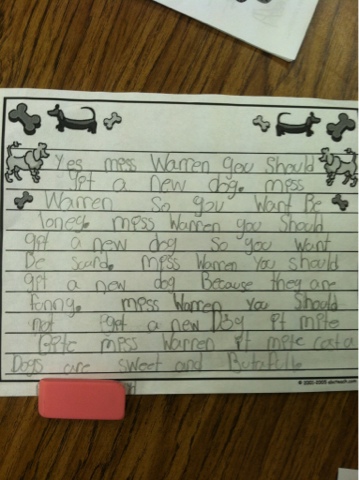 Yes miss Warren you should
get a new dog. miss
Warren so you Want Be
loney. miss Warren you should
get a new dog so you want
Be scard. miss Warren you should
git a new dog Because they are
funny. miss Warren you should
not get a new Dog it mite
Bite miss Warren it mite eat a
Dogs are sweet and Butafulle